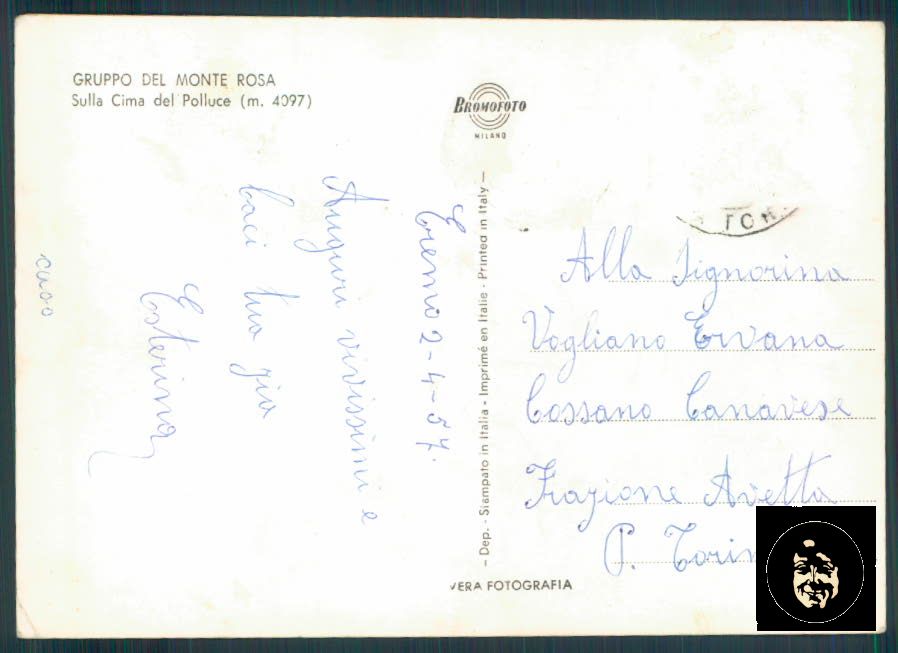 GRUPPO DEL MONTE ROSA
Sulla Cima del Polluce (m. 4097)
BROMOFOTO
MILANO
2-4-57.
Auguri vivissimi e
baci tua zia
Esterina
- Dep. - Stampato in Italia - Imprimé en Italie - Printed in Italy -
TOR
Alla Signorina
Vogliano Ervana
Cossano Canavese
Frazione Avetta
P. Torin
VERA FOTOGRAFIA